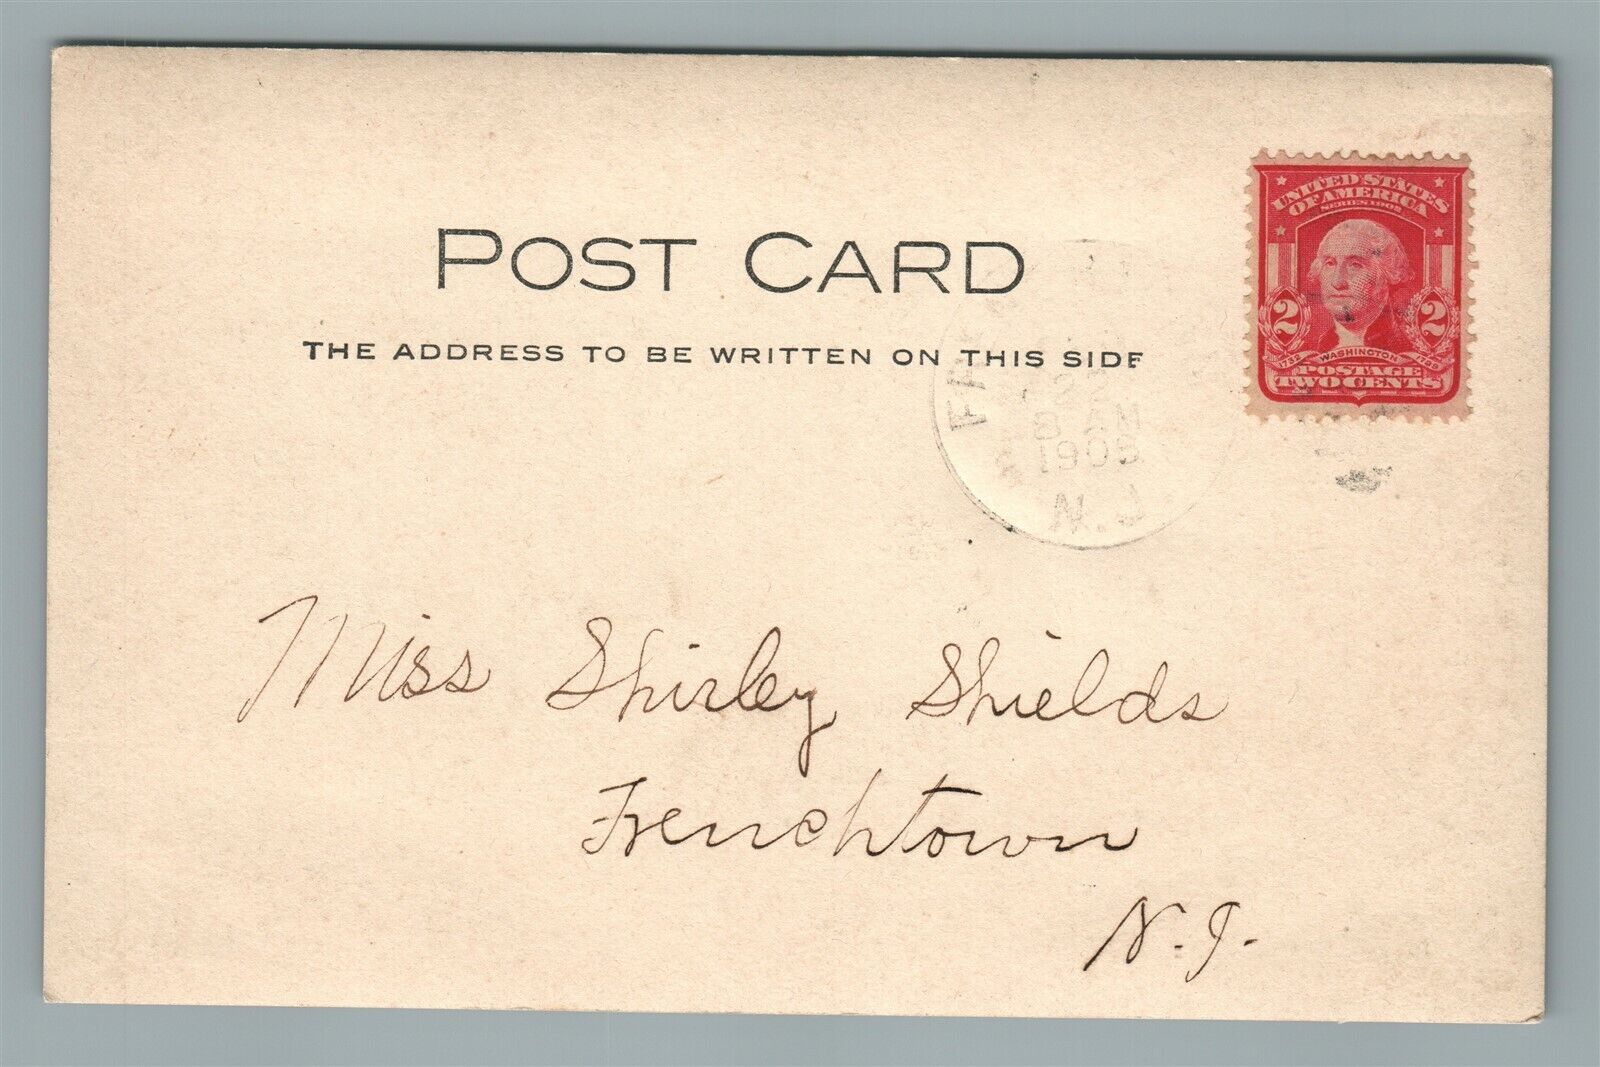 POST CARD
THE ADDRESS TO BE WRITTEN ON THIS SIDE
UNITED STATES
OF AMERICA
SERIES 1902
2 2
1732 WASHINGTON 1799
POSTAGE
TWO CENTS
8 AM
N.J.
Miss Shirley Shields
Frenchtown
N.J.